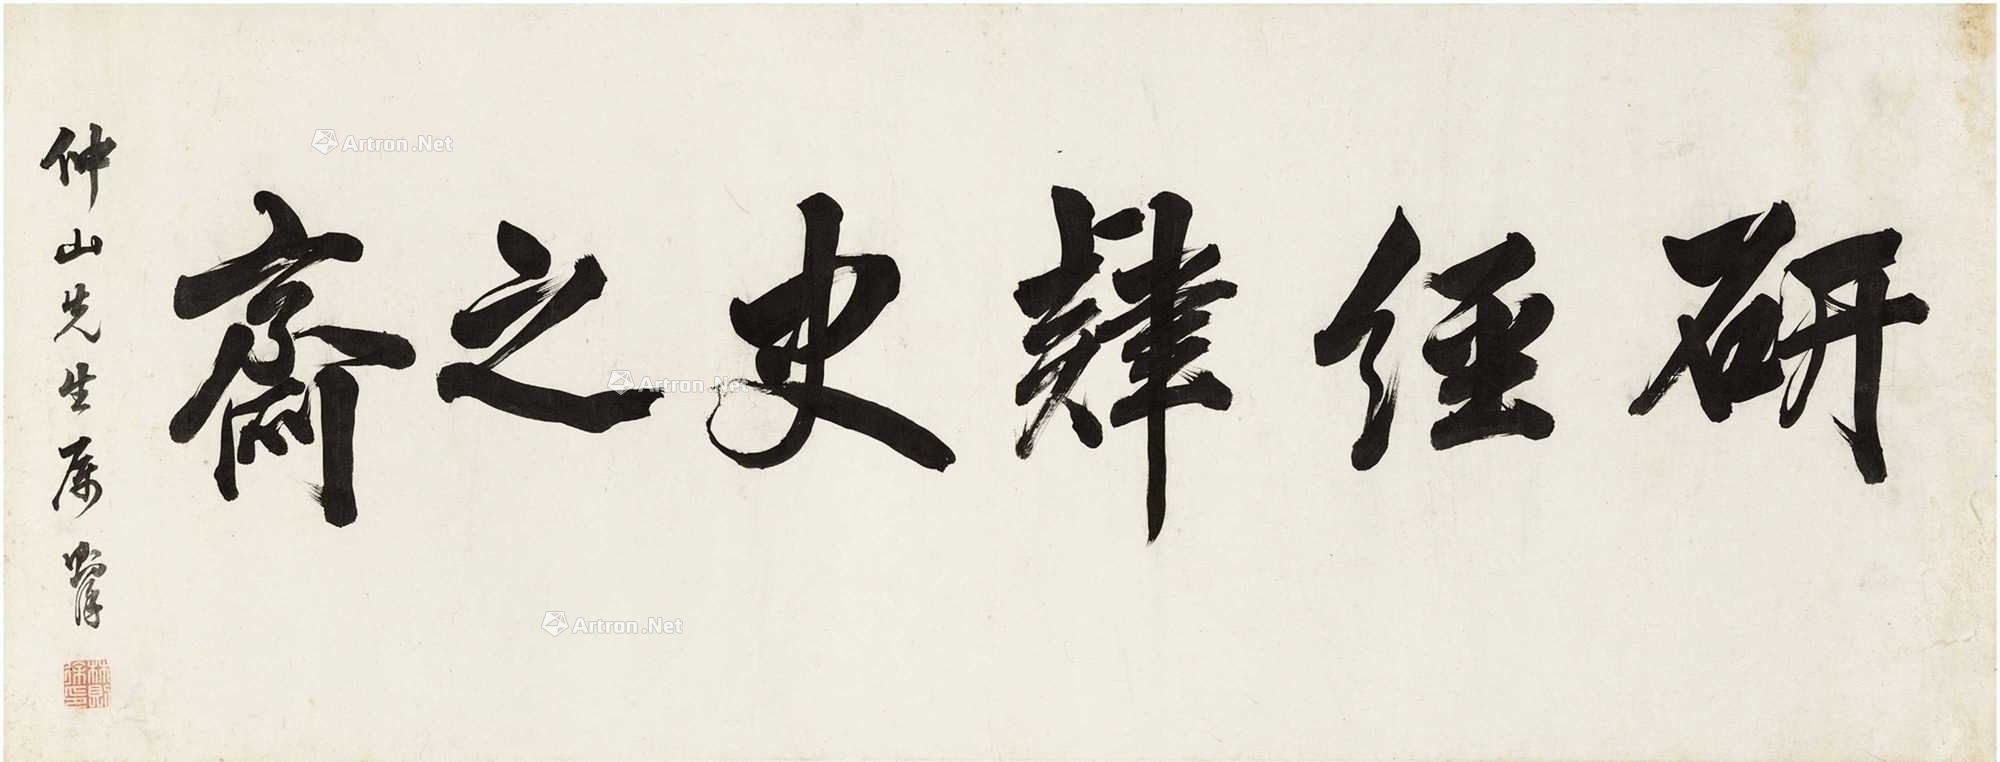 研經肄史之齋
仲山先生属 則徐
林則徐印
Artron.Net
Artron.Net
Artron.Net